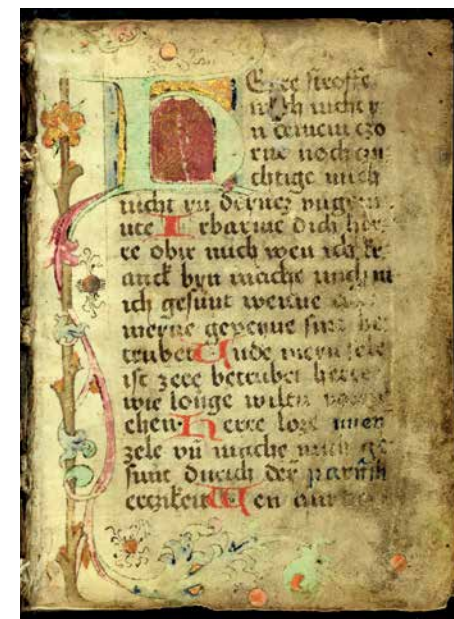 HErre stroffe
mich nicht y
n deinem czo
rne noch czu
chtige mich
nicht yn deyner
Erbarme dich her
re obir mich wen ich kr
anck byn mache mich
ich gesunt wenne
meyne gebeyne sint be
trubet Unde meyn sele
ist zere betrubet herre
wie longe wiltu
Herre lose meyn
zele vn mache mich ge
sunt durch deyne barmh
erczikeit Wen